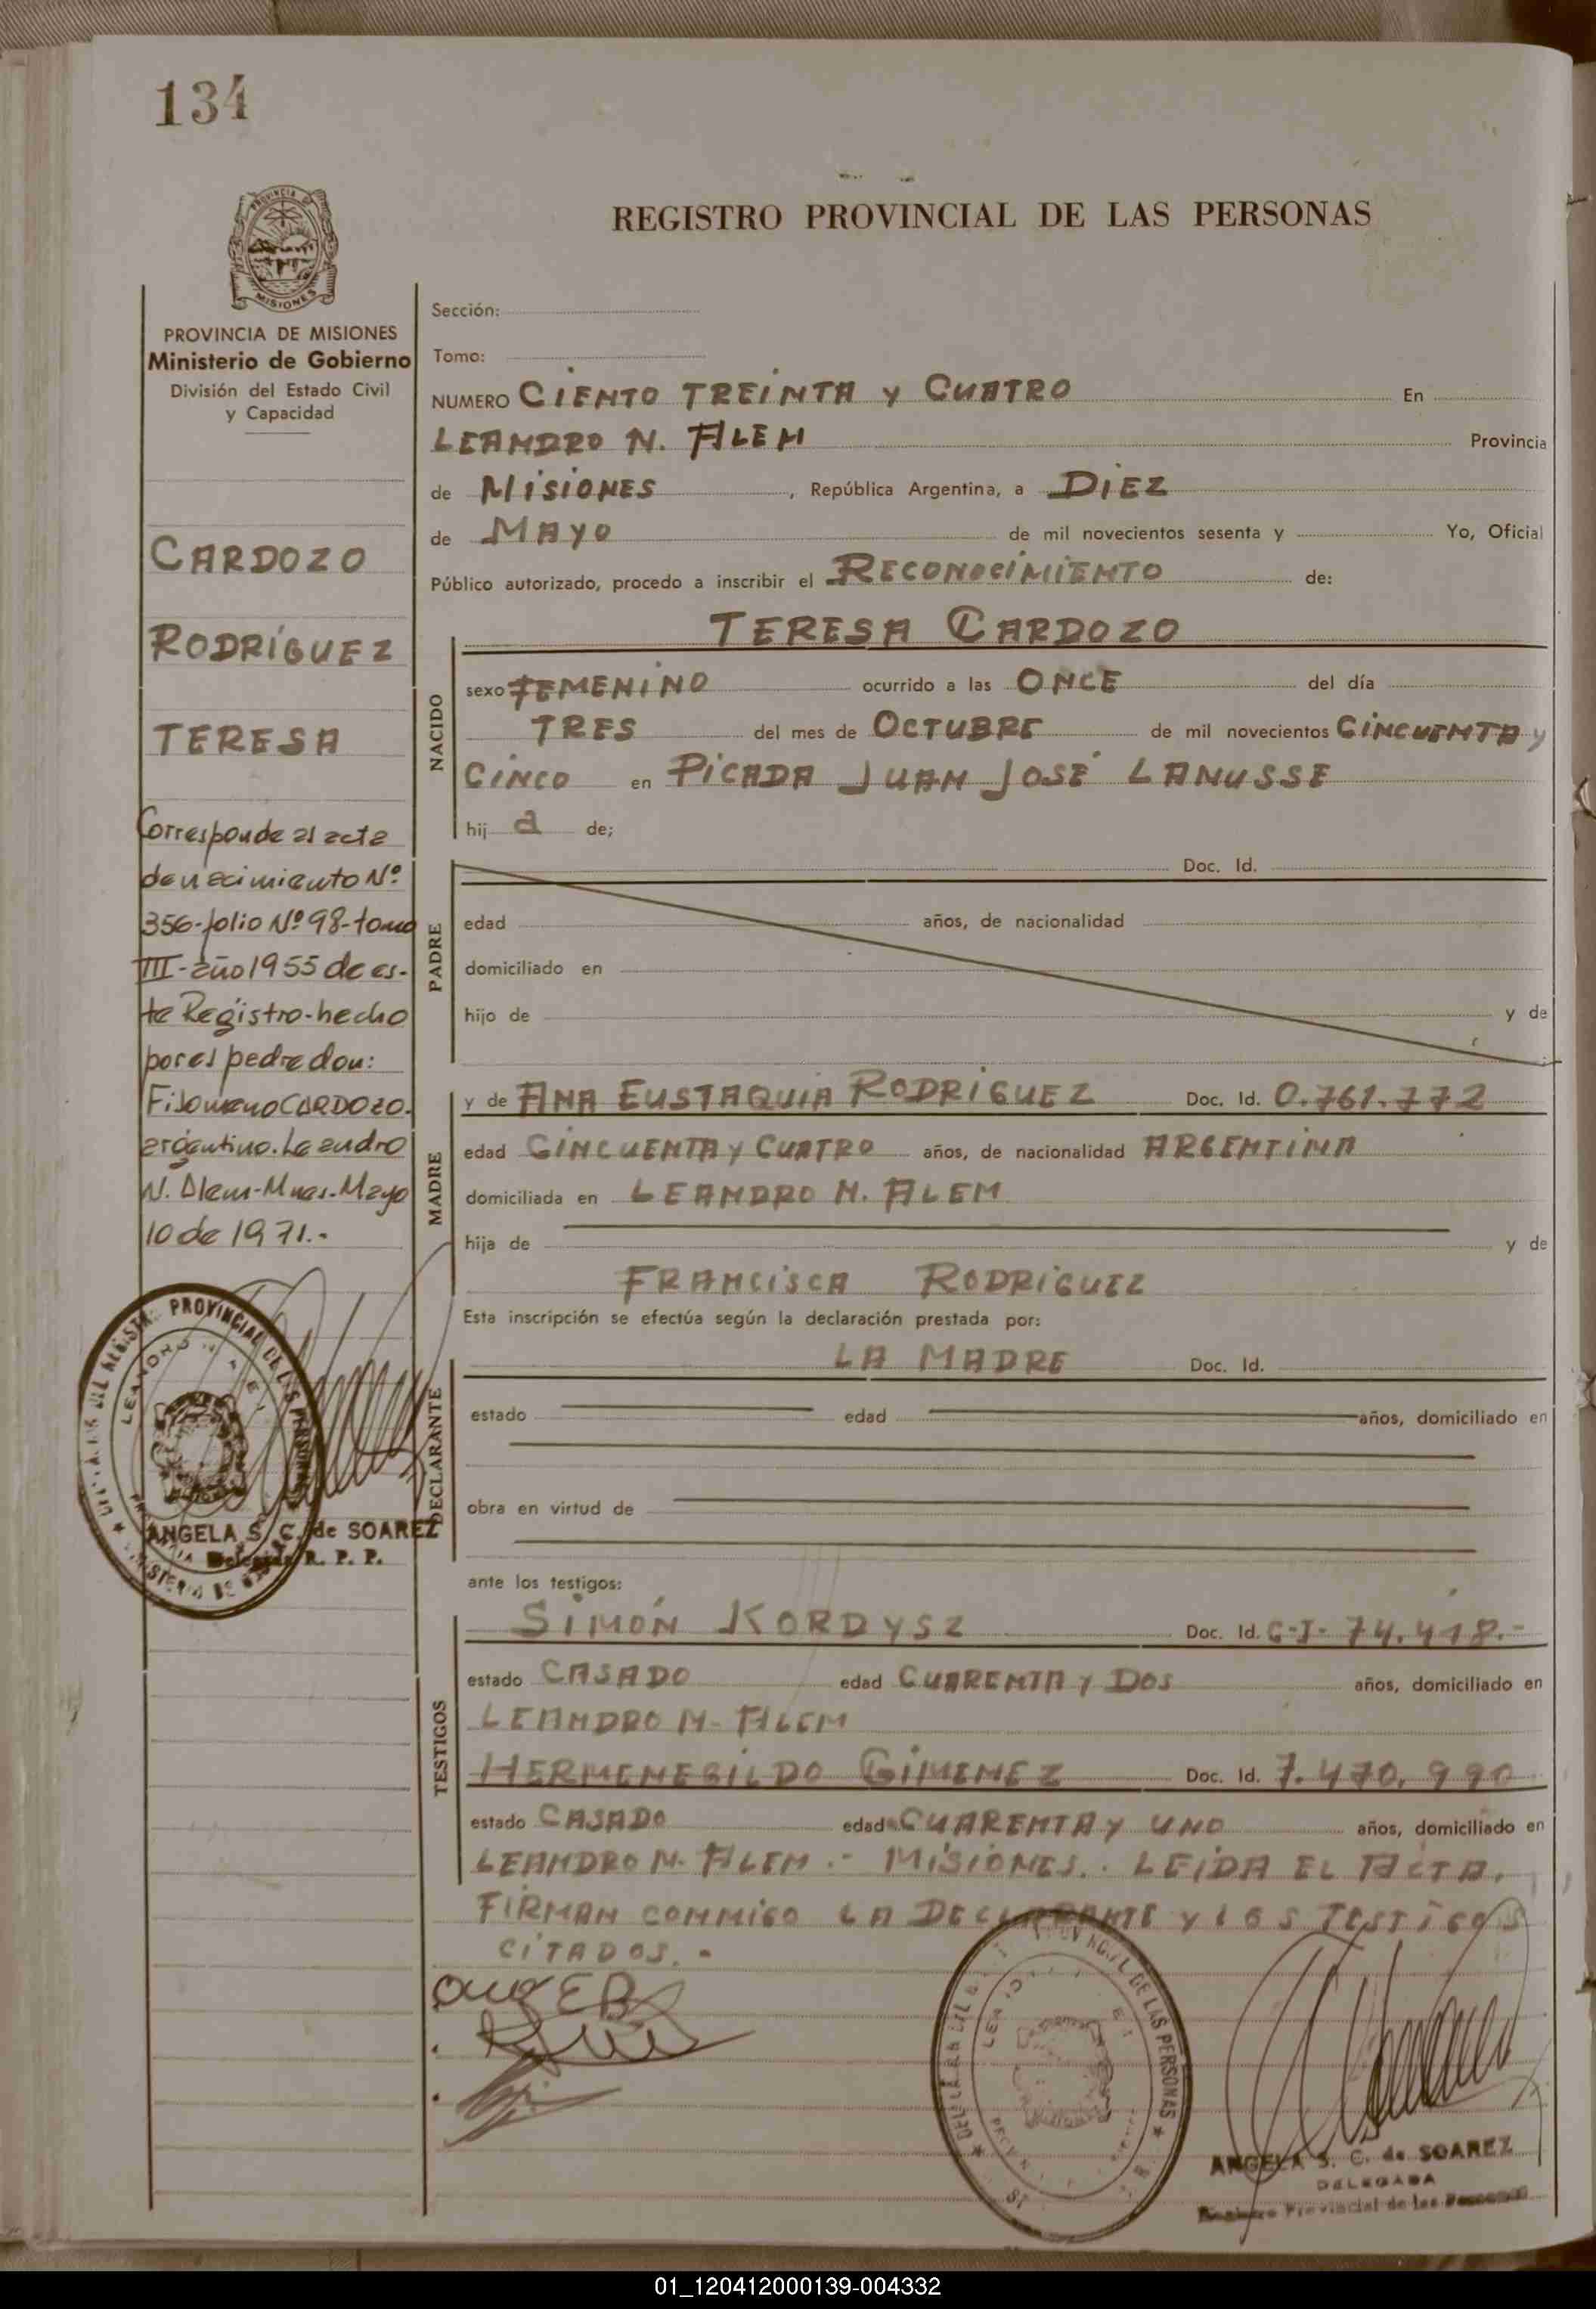 134
PROVINCIA DE
MISIONES
REGISTRO PROVINCIAL DE LAS PERSONAS
PROVINCIA DE MISIONES
Ministerio de Gobierno
División del Estado Civil
y Capacidad
CARDOZO
RODRÍGUEZ
TERESA
Corresponde al acta
de nacimiento Nº
356-folio Nº 98-tomo
III-año 1955 de es-
te Registro-hecho
por el padre don:
Filomeno CARDOZO.
argentino. Leandro
N. Alem-Mnes.-Mayo
10 de 1971.-
ANGELA S. C. de SOAREZ
Delegada R. P. P.
Sección:
Tomo:
NUMERO CIENTO TREINTA Y CUATRO En
LEANDRO N. ALEM Provincia
de MISIONES, República Argentina, a DIEZ
de MAYO de mil novecientos sesenta y Yo, Oficial
Público autorizado, procedo a inscribir el RECONOCIMIENTO de:
NACIDO
TERESA CARDOZO
sexo FEMENINO ocurrido a las ONCE del día
TRES del mes de OCTUBRE de mil novecientos CINCUENTA y
CINCO en PICADA JUAN JOSÉ LANUSSE
hij a de;
PADRE
Doc. Id.
edad años, de nacionalidad
domiciliado en
hijo de y de
MADRE
y de ANA EUSTAQUIA RODRIGUEZ Doc. Id. 0.761.772
edad CINCUENTA y CUATRO años, de nacionalidad ARGENTINA
domiciliada en LEANDRO N. ALEM
hija de y de
FRANCISCA RODRIGUEZ
Esta inscripción se efectúa según la declaración prestada por:
DECLARANTE
LA MADRE Doc. Id.
estado edad años, domiciliado en
obra en virtud de
ante los testigos:
TESTIGOS
SIMÓN KORDYSZ Doc. Id. C-I- 74.418.-
estado CASADO edad CUARENTA Y DOS años, domiciliado en
LEANDRO N- ALEM
HERMENEGILDO GIMENEZ Doc. Id. 7.470.990
estado CASADO edad CUARENTA Y UNO años, domiciliado en
LEANDRO N. ALEM.- MISIONES.. LEIDA EL ACTA,
FIRMAN CONMIGO LA DECLARANTE Y LOS TESTIGOS
CITADOS.-
DE LAS PERSONAS
ANGELA S. C. de SOAREZ
DELEGADA
Registro Provincial de las Personas
01_120412000139-004332